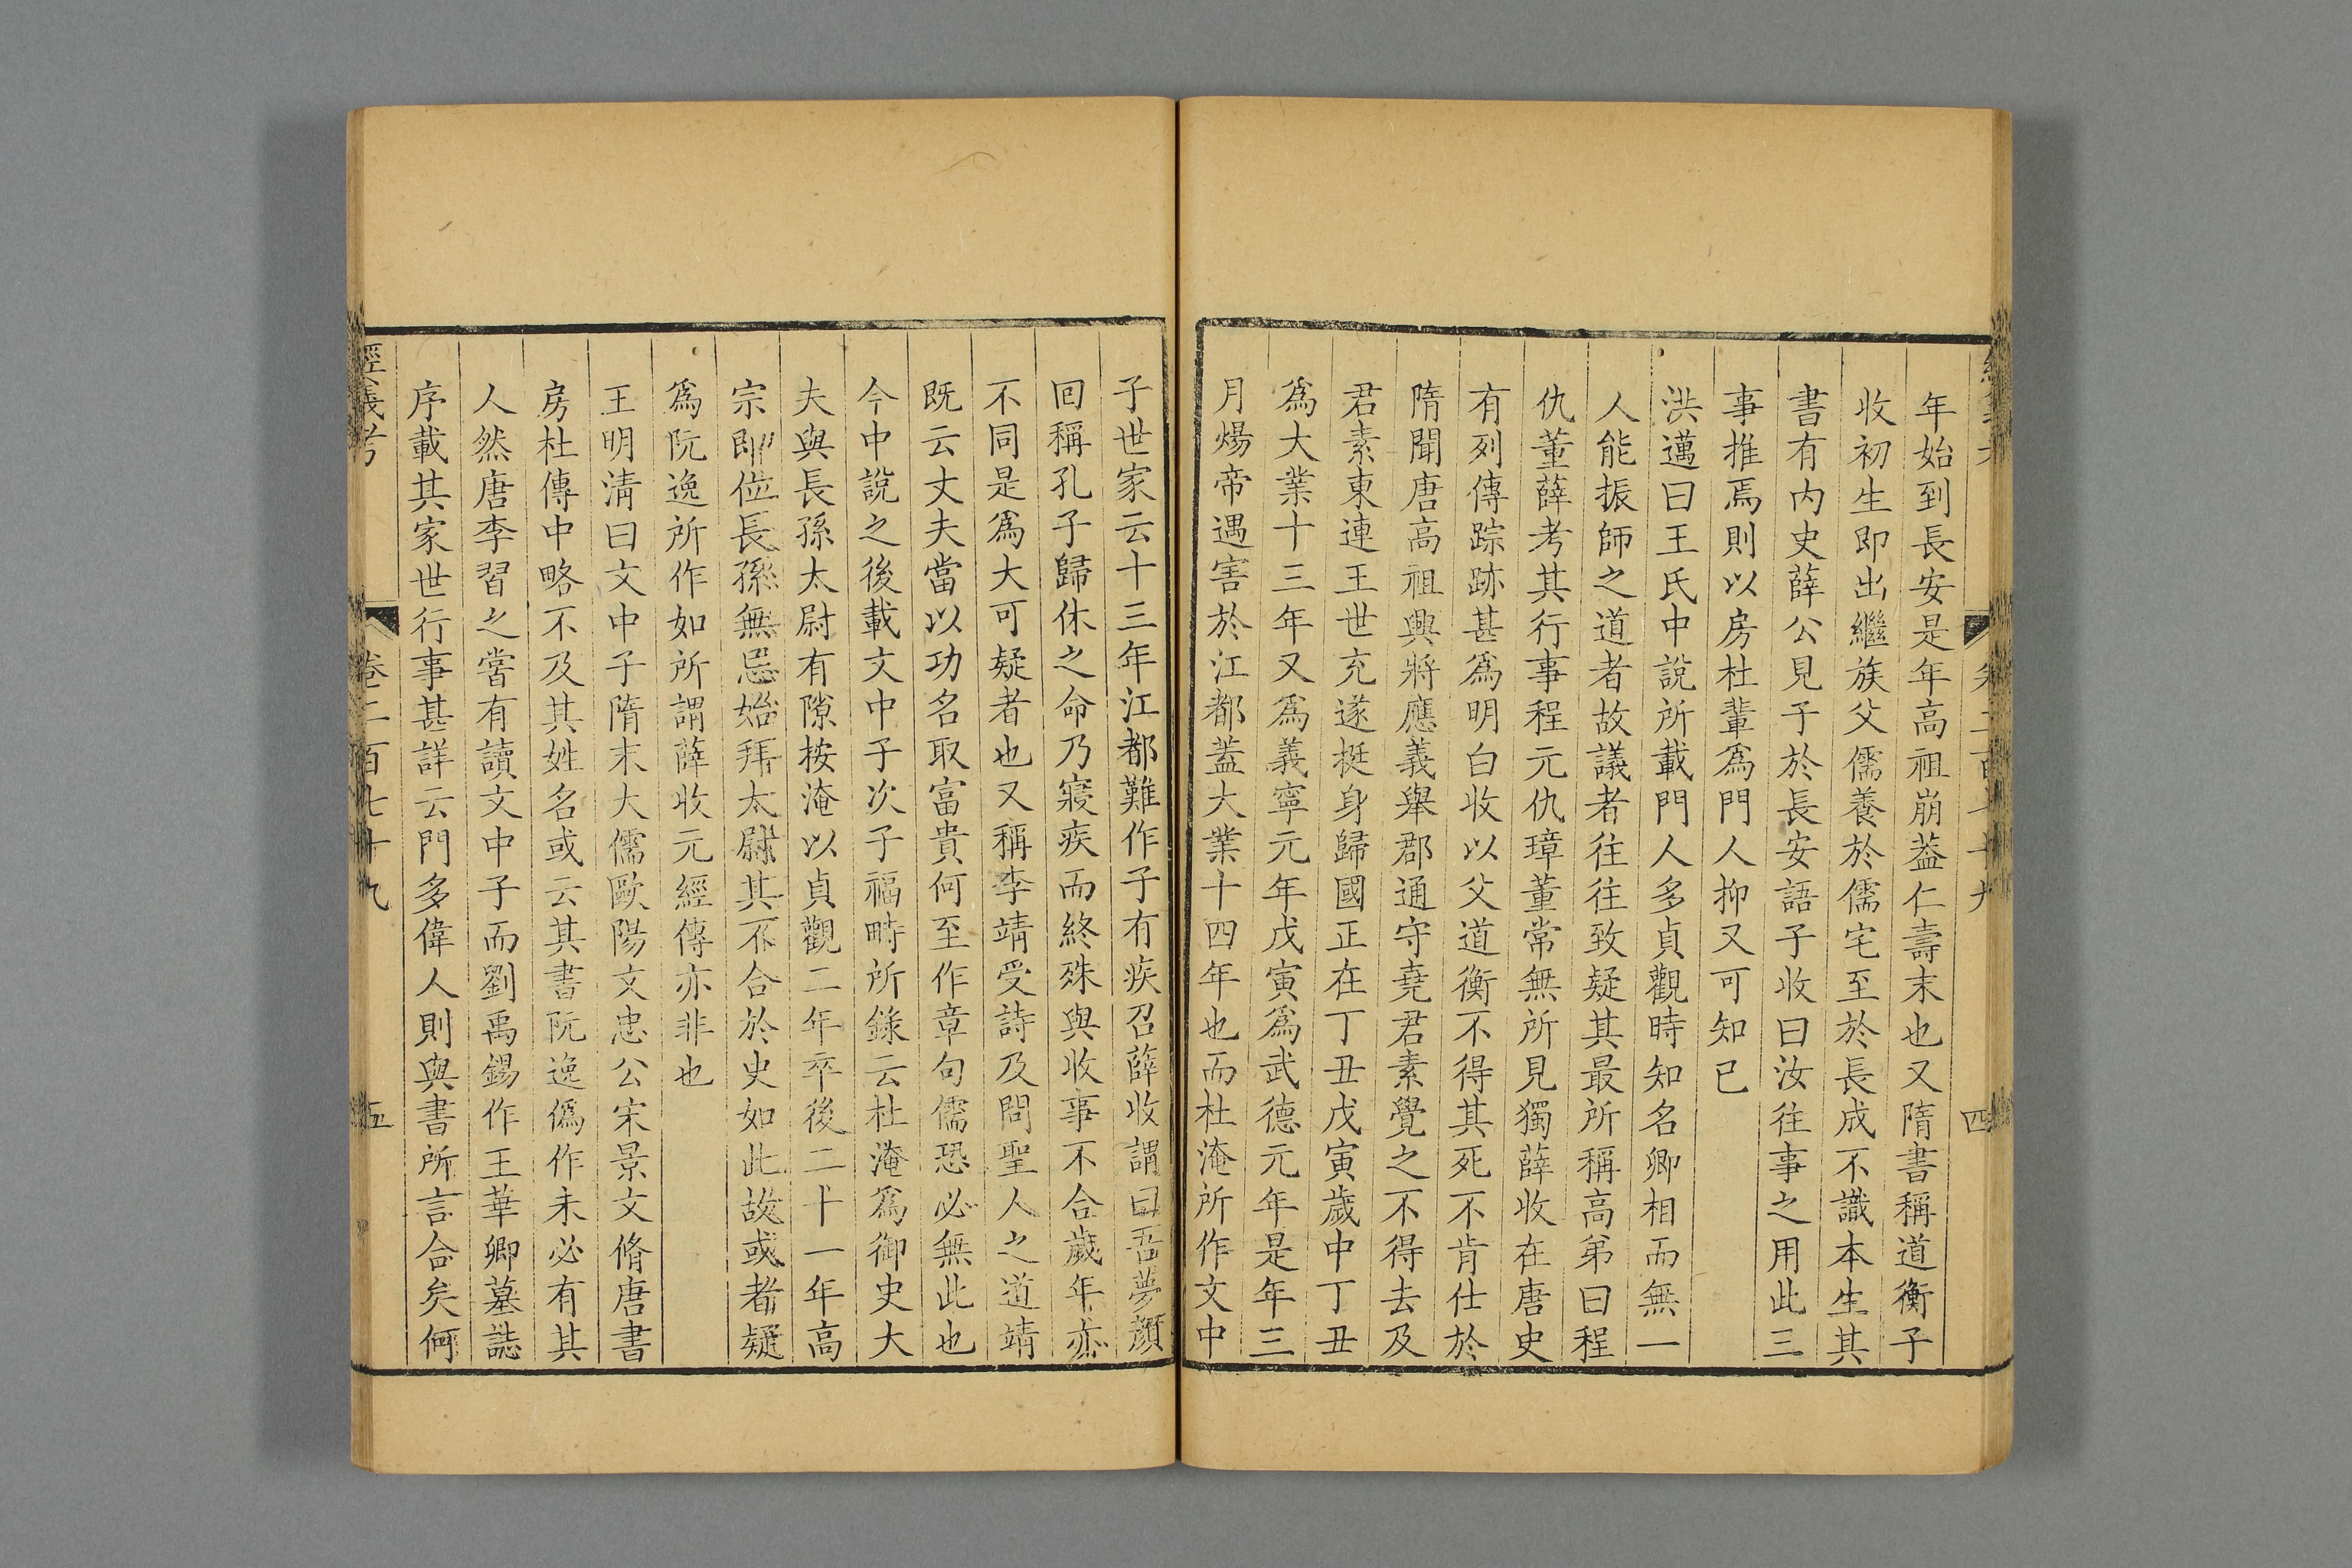 年始到長安是年高祖崩葢仁壽末也又隋書稱道衡子
收初生即出繼族父儒養於儒宅至於長成不識本生其
書有内史薛公見子於長安語子收曰汝往事之用此三
事推焉則以房杜輩爲門人抑又可知已
洪邁曰王氏中說所載門人多貞觀時知名卿相而無一
人能振師之道者故議者往往致疑其最所稱高弟曰程
仇董薛考其行事程元仇璋董常無所見獨薛收在唐史
有列傳踪跡甚爲明白收以父道衡不得其死不肯仕於
隋聞唐高祖興將應義舉郡通守堯君素覺之不得去及
君素東連王世充遂挺身歸國正在丁丑戊寅歲中丁丑
爲大業十三年又爲義寧元年戊寅爲武德元年是年三
月煬帝遇害於江都蓋大業十四年也而杜淹所作文中
子世家云十三年江都難作子有疾召薛收謂曰吾夢顏
回稱孔子歸休之命乃寢疾而終殊與收事不合歲年亦
不同是爲大可疑者也又稱李靖受詩及問聖人之道靖
既云丈夫當以功名取富貴何至作章句儒恐必無此也
今中說之後載文中子次子福畤所錄云杜淹爲御史大
夫與長孫太尉有隙按淹以貞觀二年卒後二十一年高
宗即位長孫無忌始拜太尉其不合於史如此故或者疑
爲阮逸所作如所謂薛收元經傳亦非也
王明淸曰文中子隋末大儒歐陽文忠公宋景文脩唐書
房杜傳中略不及其姓名或云其書阮逸僞作未必有其
人然唐李習之嘗有讀文中子而劉禹錫作王華卿墓誌
序載其家世行事甚詳云門多偉人則與書所言合矣何
經義考
卷二百七十九
五
四